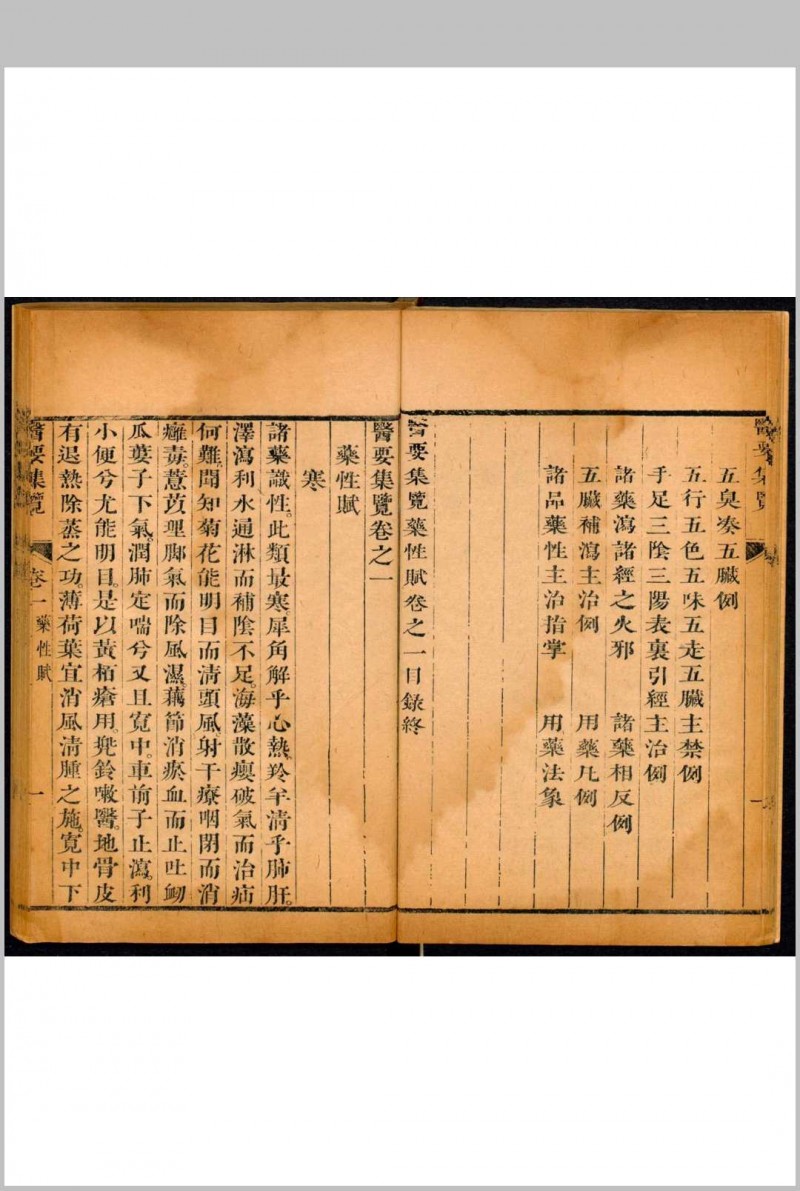 醫要集覽
五臭湊五臟例
五行五色五味五走五臟主禁例
手足三陰三陽表裏引經主治例
諸藥瀉諸經之火邪　諸藥相反例
五臟補瀉主治例　用藥凡例
諸品藥性主治指掌　用藥法象
醫要集覽藥性賦卷之一目錄終
醫要集覽卷之一
藥性賦
寒
諸藥識性。此類最寒。犀角解乎心熱。羚羊清乎肺肝。
澤瀉利水通淋而補陰不足。海藻散癭破氣而治疝
何難。聞知菊花能明目而清頭風。射干療咽閉而消
癰毒。薏苡理脚氣而除風濕。藕節消瘀血而止吐衂
瓜蔞子下氣。潤肺定喘兮又且寬中。車前子止瀉。利
小便兮尤能明目。是以黃栢瘡用。兜鈴嗽醫。地骨皮
有退熱除蒸之功。薄荷葉宜消風清腫之施。寬中下
醫要集覽　卷一藥性賦　一